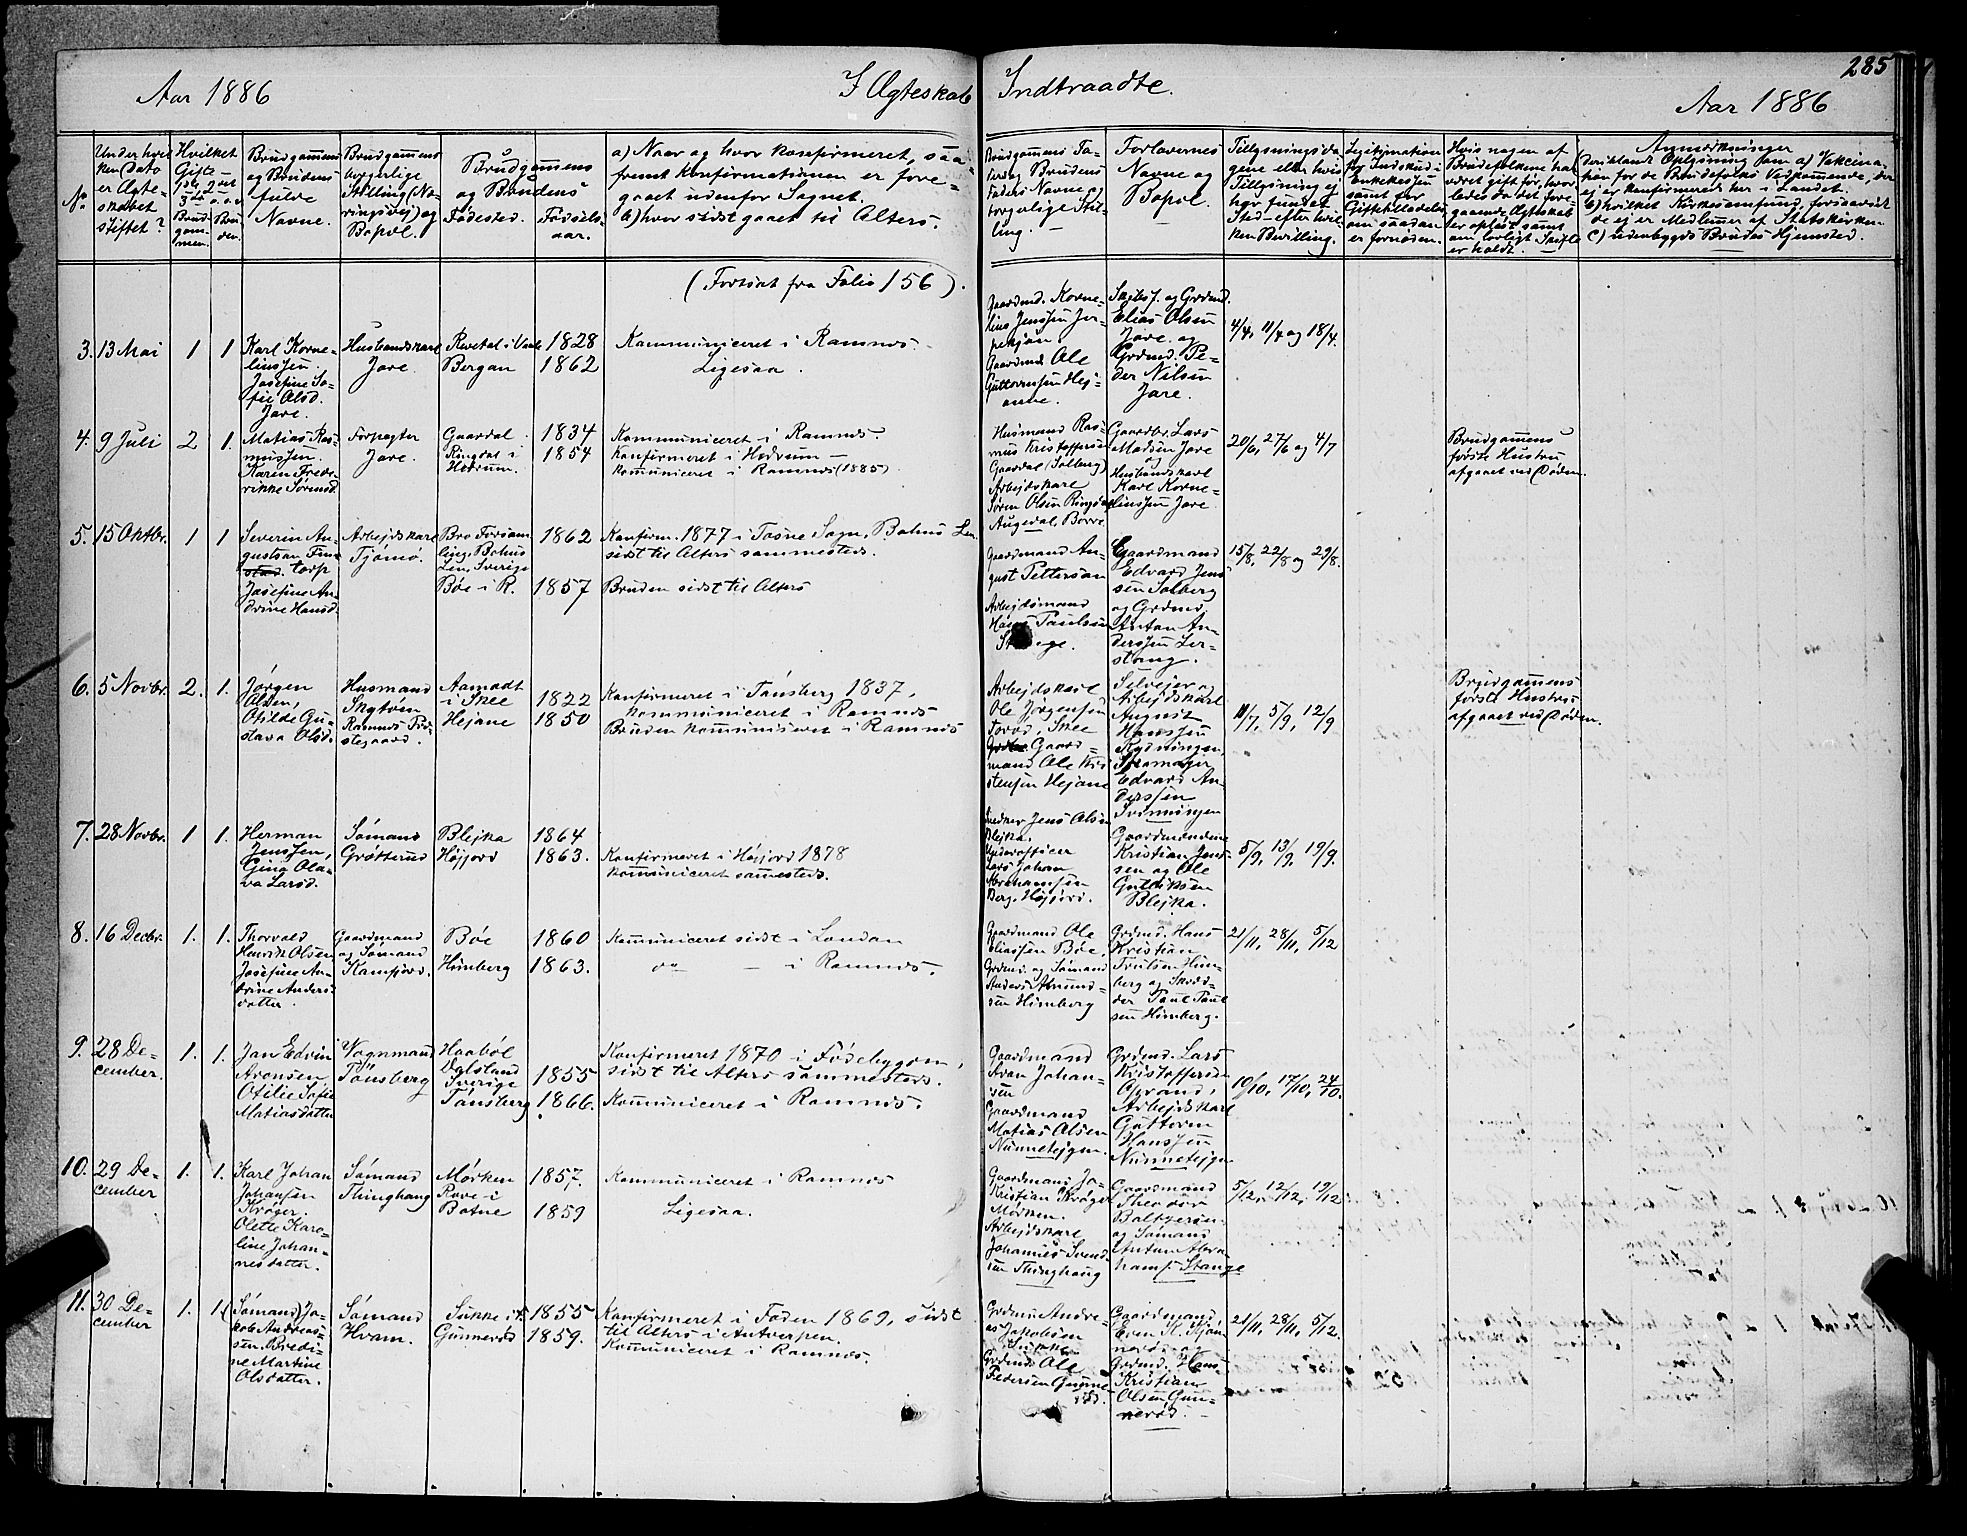 Aar 1886
I Ægteskab
Indtraadte.
285
Aar 1886
No.
Under hvil
ken Dato
er Ægte-
skabet
stiftet?
Hvilket
Gifte -
1ste 2det
3die o.s.v.
Brud
gom-
men.
Bru
den.
Brudgommens
og Brudens
fulde
Navne.
Brudgommens
borgerlige
Stilling (Næ-
ringsvej) og
Bopæl.
Brudgommens
og Brudens
Fødested.
Fødsels-
aar.
a) Naar og hvor konfirmeret, saa-
fremt Konfirmationen er fore-
gaaet udenfor Sognet.
b) hvor sidst gaaet til Alters.
Brudgommens Fa-
ders og Brudens
Faders Navne og
borgerlige Stil-
ling.
Forlovernes
Navne og
Bopæl.
Tillysningsda-
gene eller hvis
Tillysning ej
har fundet
Sted - efter hvil-
ken Bevilling.
Legitimation
for Indskud i
Enkekassen
samt for
Giftetilladelse
om saadan
er fornøden.
Hvis nogen af
Brudefolkene har
været gift før, hvor-
ledes da det fore-
gaaende Ægteskab
er opløst samt
om lovligt Skifte
er holdt.
Anmærkninger
(deriblandt Oplysning om a) Vakcina-
tion for de Brudefolks Vedkommende, der
ej er konfirmerede her i Landet.
b) hvilket Kirkesamfund, forsaavidt
de ej er Medlemmer af Statskirken
c) udenbygds Brudes Hjemsted.
(Fortsat fra Folio 156).
3. 13 Mai 1 1
Karl Korne-
liussen.
Josefine So-
fie Olsd.
Jare.
Husbondskarl
Jare.
Revetal i Vaale 1828
Bergan 1862
Kommuniceret i Ramnes.
Ligesaa.
Gaardmd. Korne-
lius Jenssen Jer-
pekjøn
Gaardmd. Ole
Guttormsen Hej-
anne.
Sagbsf. og Grdmd.
Elias Olsen
Jare. og
Grdmd. Pe-
der Nilsen
Jare.
4/4, 11/4 og 18/4.
4. 9 Juli 2 1.
Matias Ras-
mussen.
Karen Frede-
rikke Sørensd.
Forpagter
Jare.
Gaardal 1834
Ringdal i 1854
Hedrum.
Kommuniceret i Ramnes.
Konfirmeret i Hedrum -
kommuniceret i Ramnes (1885)
Husmand Ras-
mus Kristoffersen
Gaardal (Solberg)
Arbejdskarl
Søren Olsen Ringdal
Augedal, Borre.
Gaardbr. Lars
Madsen Jare
og
Husbondskarl
Karl Korne-
liussen Jare
20/6, 27/6 og 4/7
Brudgommens
første Hustru
afgaaet ved Døden.
5. 15 Oktbr. 1 1
Severin Au-
gustsen Fin-
torp
Josefine An-
drine Hansd.
Arbejdskarl
Tjømø.
Bro Forsam-
ling, Bohus
Len, Sverige 1862
Bøe i R. 1857
Konfirm. 1877 i Tosne Sogn, Bohus Len
sidst til Alters sammesteds.
Bruden sidst til Alters
Gaardmand Au-
gust Pettersen
Arbejdsmand
Hans Paulsen
Gaardmand
Edvard Jens-
sen Solberg
og Grdmd.
Anton An-
derssen Ler-
stang.
15/8, 22/8 og 29/8.
6. 5 Novbr. 2. 1.
Jørgen
Olsen,
Otilde Gu-
stava Olsd.
Husmand
Skytven
Ramnes Præ-
stegaard.
Aamodt
i Skee 1822
Hejane 1850
Konfirmeret i Tønsberg 1837,
kommuniceret i Ramnes
Bruden kommuniceret i Ramnes
Arbejdskarl
Ole Jørgensen
Skee
Gaard-
mand Ole Kri-
stensen Hejane
Selvejer og
Arbejdskarl
August
Hanssen
Rydningen,
Skomager
Edvard An-
derssen
Svenningen
11/7, 5/9, 12/9
Brudgommens
første Hustru
afgaaet ved Døden.
7. 28 Novbr. 1 1.
Herman
Jenssen,
Gina Ola-
va Larsd.
Sømand
Grøtterud
Blejka 1864
Højjord 1863.
Konfirmeret i Højjord 1878
kommuniceret sammesteds.
Snedker Jens Olsen
Blejka.
Underofficer
Lars Johan
Abrahamsen
Berg, Højjord.
Gaardmændene
Kristian Jens-
sen og Ole
Guldiksen
Blejka.
5/9, 13/9, 19/9.
8. 16 Decbr. 1. 1.
Thorvald
Henrik Olsen
Josefine An-
drine Anders-
datter.
Gaardmand
og Sømand
Kamfjord.
Bøe 1860
Himberg 1863.
Kommuniceret sidst i London
do - i Ramnes.
Gaardmand Ole
Eliassen Bøe,
Grdmd. og Sømand
Anders Amund-
sen Himberg
Grdmd. Hans
Kristian
Trulsen Him-
berg og Skræd-
der Paul Paul-
sen Himberg.
21/11, 28/11, 5/12
9. 28 De-
cember. 1. 1.
Jan Edvin
Aronsen
Otilie Sofie
Matiasdatter
Vognmand
Tønsberg
Haabøl
Dalsland
Sverige 1855
Tønsberg 1866.
Konfirmeret 1870 i Fødebygden,
sidst til Alters sammesteds.
Kommuniceret i Ramnes.
Gaardmand
Aron Johan-
sen
Gaardmand
Matias Olsen
Nunnetejgen.
Grdmd. Lars
Kristoffersen
Oprand,
Arbejdskarl
Guttorm
Hanssen
Nunnetejgen
10/10, 17/10, 24/10.
10. 29 De-
cember 1. 1.
Karl Johan
Johansen
Krøger.
Olette Karo-
line Johan-
nesdatter.
Sømand
Thinghaug
Mørken 1857.
Rove i
Botne 1859
Kommuniceret i Ramnes
Ligesaa.
Gaardmand Jo-
Kristian Krøger
Mørken.
Arbejdskarl
Johannes Svend-
sen Thinghaug
Gaardmand
Theodor
Baltzersen
og Sømand
Anton Abra-
hams. Stange
5/12, 12/12, 19/12
11. 30 De-
cember 1. 1.
(Sømand) Ja-
kob Andreas-
sen. Bredi-
ne Martine
Olsdatter.
Sømand
Hvam.
Sukke i F. 1855
Gunnerød 1859.
Konfirmeret i Foden 1869, sidst
til Alters i Antverpen.
Kommuniceret i Ramnes.
Grdmd. Andre-
as Jakobsen
Sukke
Grdmd. Ole
Pedersen Gunne-
rød.
Gaardmand
Even K. Kjøn-
nerød og
Grdmd. Hans
Kristian
Olsen Gun-
nerød.
21/11, 28/11, 5/12.